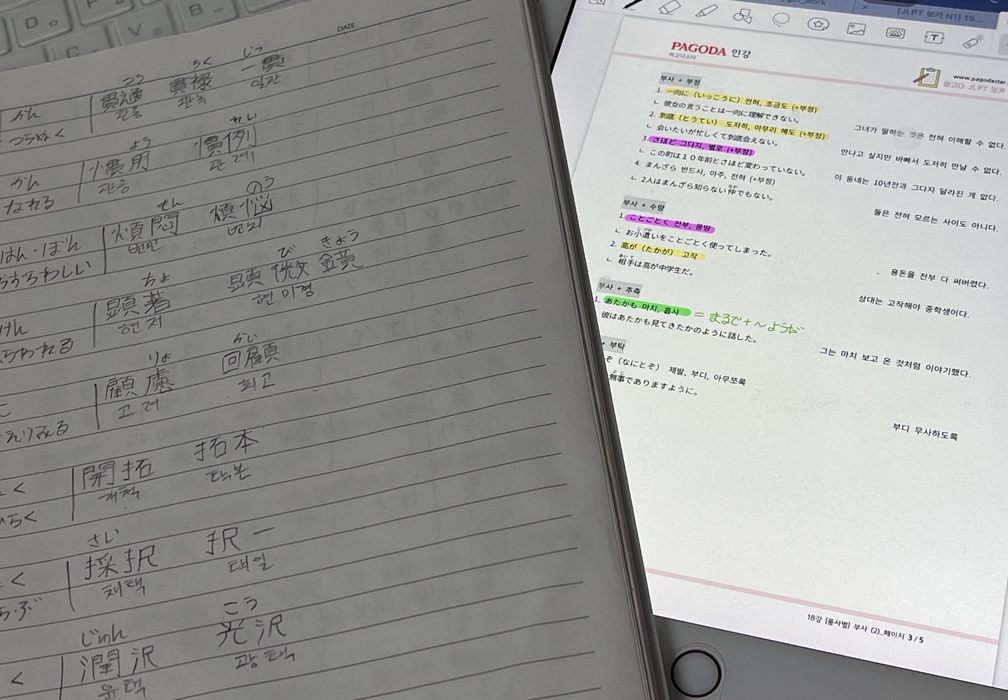 DATE
かん
つう
らく
いっ
貫通 貫禄 一貫
つらぬく
관통 관록 일관
かん
よう
れい
慣用 慣例
なれる
관용 관례
はん・ぼん
もん
のう
煩悶 煩悩
わずらわしい
번민 번뇌
けん
ちょ
び きょう
顕著 顕微鏡
현저 현미경
りょ
かい
顧慮 回顧
고려 회고
開拓 拓本
개척 탁본
さい
採択 択一
채택 택일
じゅん
こう
潤沢 光沢
윤택 광택
[JLPT 보카 N1] 19...
PAGODA 인강
www.pagodastar
파고다 JLPT 보카
부사 + 부정
1. 一向に（いっこうに）전혀, 조금도 (+부정)
ㄴ 彼女の言うことは一向に理解できない。
그녀가 말하는 것은 전혀 이해할 수 없다.
2. 到底（とうてい）도저히, 아무리 해도 (+부정)
ㄴ 会いたいが忙しくて到底会えない。
만나고 싶지만 바빠서 도저히 만날 수 없다.
3. さほど 그다지, 별로 (+부정)
ㄴ この町は１０年前とさほど変わっていない。
이 동네는 10년전과 그다지 달라진 게 없다.
4. まんざら 반드시, 아주, 전혀 (+부정)
ㄴ 2人はまんざら知らない仲でもない。
둘은 전혀 모르는 사이도 아니다.
부사 + 수량
1. ことごとく 전부, 몽땅
ㄴ お小遣いをことごとく使ってしまった。
용돈을 전부 다 써버렸다.
2. 高が（たかが）고작
ㄴ 相手は高が中学生だ。
상대는 고작해야 중학생이다.
부사 + 추측
1. あたかも 마치, 흡사 = まるで + ～ようだ
彼はあたかも見てきたかのように話した。
그는 마치 보고 온 것처럼 이야기했다.
+ 부탁
ぞ（なにとぞ）제발, 부디, 아무쪼록
無事でありますように。
부디 무사하도록
18강 [품사별] 부사 (2)_페이지 3 / 5